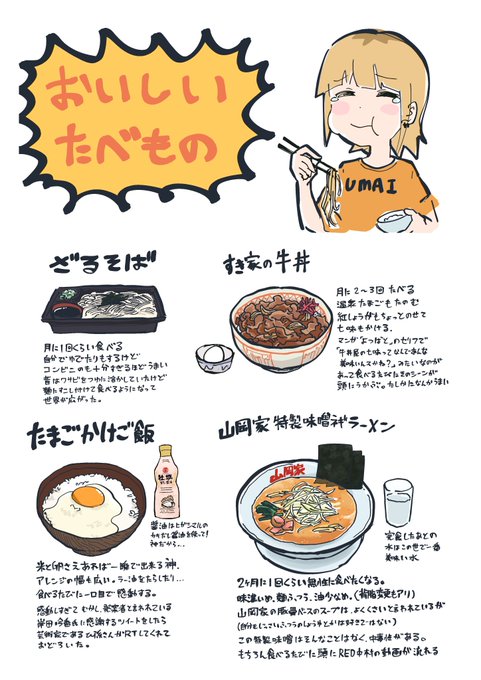 おいしい
たべもの
UMAI
ざるそば
月に1回くらい食べる
自分でゆでたりもするけど
コンビニのも十分すぎるほどうまい
昔はワサビをつゆに溶かしていたけど
麺に少し付けて食べるようになって
世界が広がった。
すき家の牛丼
月に2〜3回たべる
温泉たまごもたのむ
紅しょうがもちょっとのせて
七味もかける。
マンガ「よつばと」のセリフで
「牛丼屋の七味ってなんであんな
美味いんすかね?」みたいなのが
あって食べるたびにそのシーンが
頭にうかぶ。たしかになんかうまい
たまごかけご飯
醤油はヒガシマルの
牡蠣だし醤油を使って!
神だから…
米と卵さえあれば一瞬で出来る神。
アレンジの幅も広い。ラー油をたらしたり…
食べるたびに一口目で感動する。
感動しすぎてむかし、発案者と言われている
岸田吟香氏に感謝するツイートをしたら
芸術家であるひ孫さんがRTしてくれて
おどろいた。
山岡家 特製味噌ネギラーメン
山岡家
完食したあとの
水はこの世で一番
美味い水
2ヶ月に1回くらい無性に食べたくなる。
味濃いめ、麺ふつう、油少なめ。(背脂変更もアリ)
山岡家の豚骨ベースのスープは、よくくさいと言われているが
(自分もじっさいふつうのしょうゆとかは好きではない)
この特製味噌はそんなことはなく、中毒性がある。
もちろん食べるたびに頭にRED中村の動画が流れる